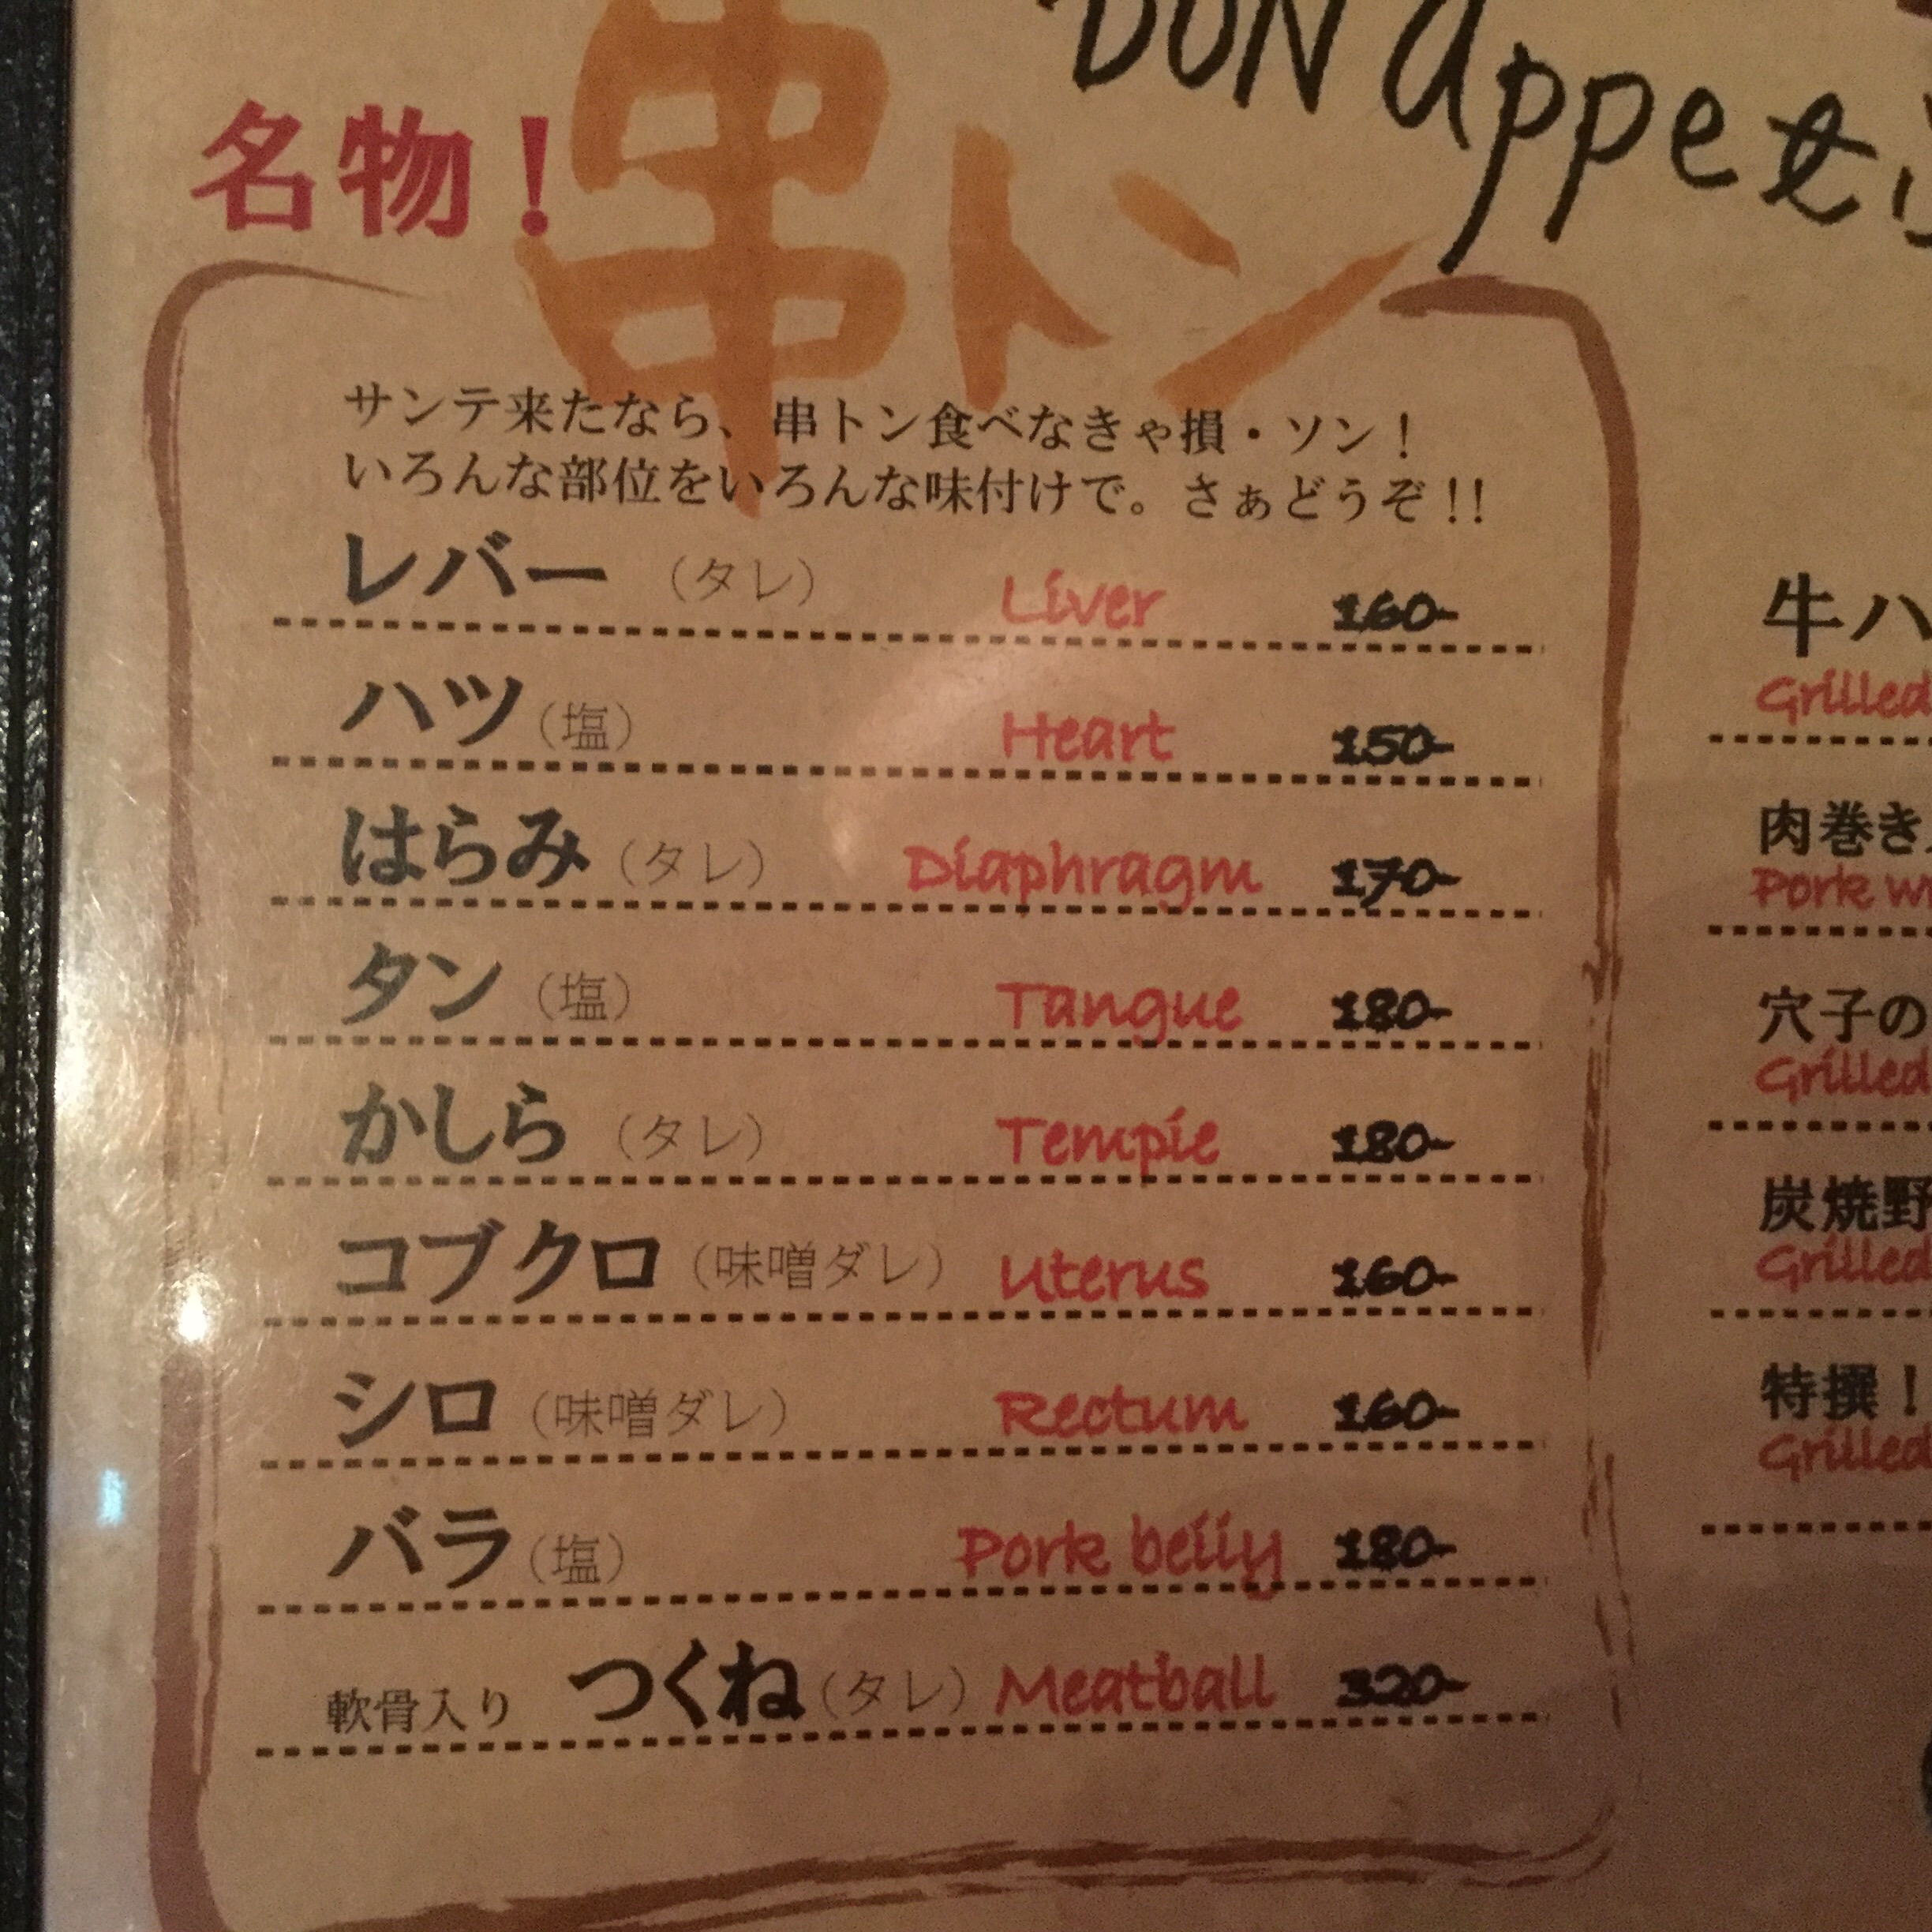 BON appeti
名物!
串トン
サンテ来たなら、串トン食べなきゃ損・ソン!
いろんな部位をいろんな味付けで。さぁどうぞ!!
レバー (タレ) Liver 160-
ハツ (塩) Heart 150-
はらみ (タレ) Diaphragm 170-
タン (塩) Tangue 180-
かしら (タレ) Temple 180-
コブクロ (味噌ダレ) Uterus 160-
シロ (味噌ダレ) Rectum 160-
バラ (塩) Pork belly 180-
軟骨入り つくね (タレ) Meatball 320-
牛ハ
Grilled
肉巻き
Pork w
穴子の
Grilled
炭焼野
Grilled
特撰!
Grilled